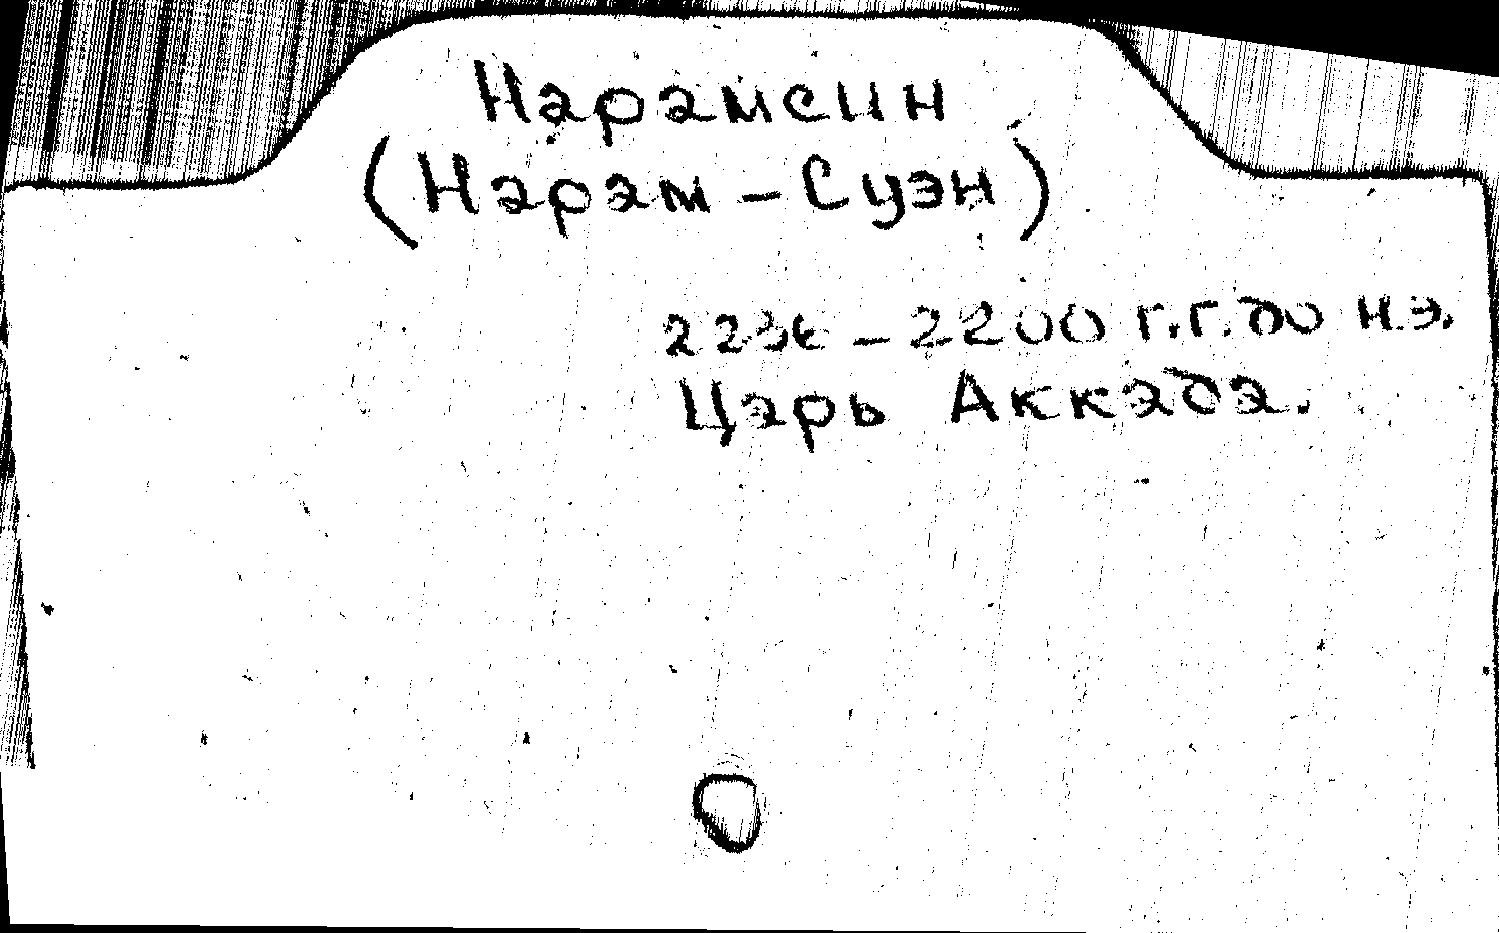 Нарамсин
(Нарам-Суэн)
2236-2200 г.г. до н.э.
Царь Аккада.